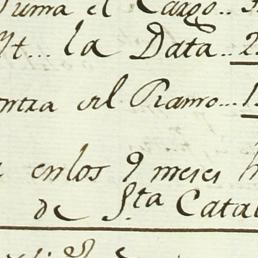 Suma el Cargo..
Yt... la Data.. 2
contra el Ramo... 1
en los 9 meses
de Sta Catal